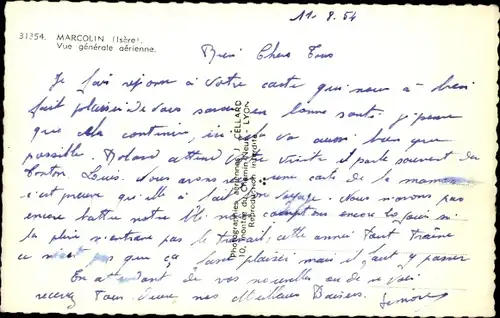 11.8.54
31354. MARCOLIN (Isère).
Vue générale aérienne.
Bien Chers Tous
Je fais réponse à votre carte qui nous à bien
fait plaisir de vous savoir en bonne santé. J'espère
que cela continue, ici va aussi bien que
possible. Roland attend votre visite il parle souvent du
tonton Louis. Nous avons une carte de la maman
c'est preuve qu'elle à fait bon voyage. Nous n'avons pas
encore battre notre blé nous comptons encore
la pluie n'entrave pas le travail, cette année tout traîne
ce n'est pas que ça fasse plaisir mais il faut y passer
En attendant de vos nouvelles ou de
recevez Tous deux nos Meilleurs Baisers.
Photographies aériennes J. CELLARD
10, montée du Chemin-Neuf - LYON
Reproduction interdite